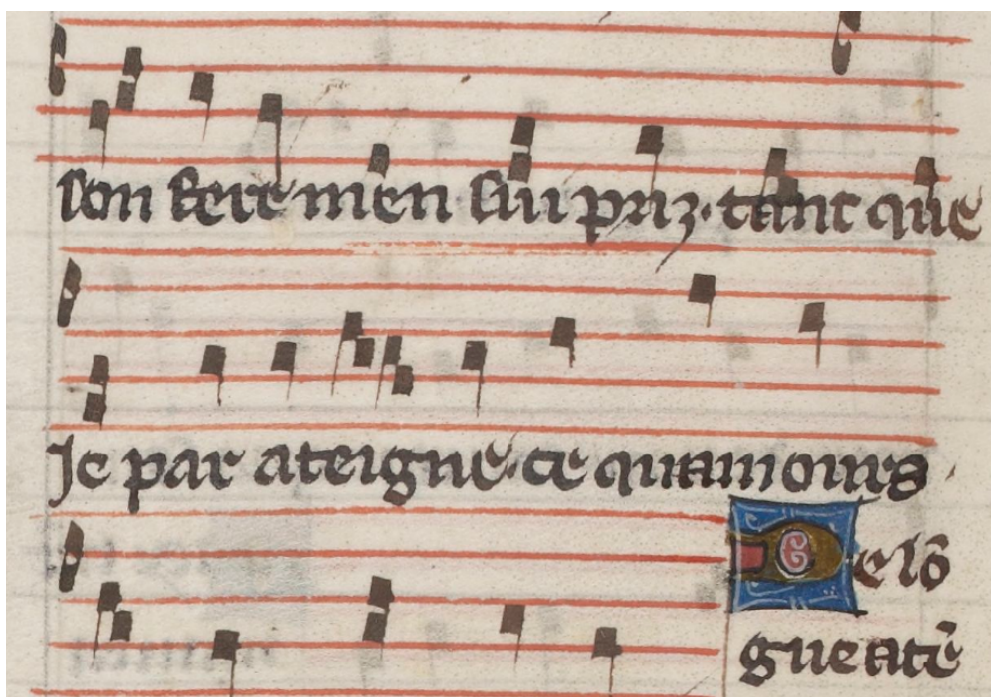 son sere men sui priz. tant que
Je par ateigne. ce quamours
De lō
gue atē